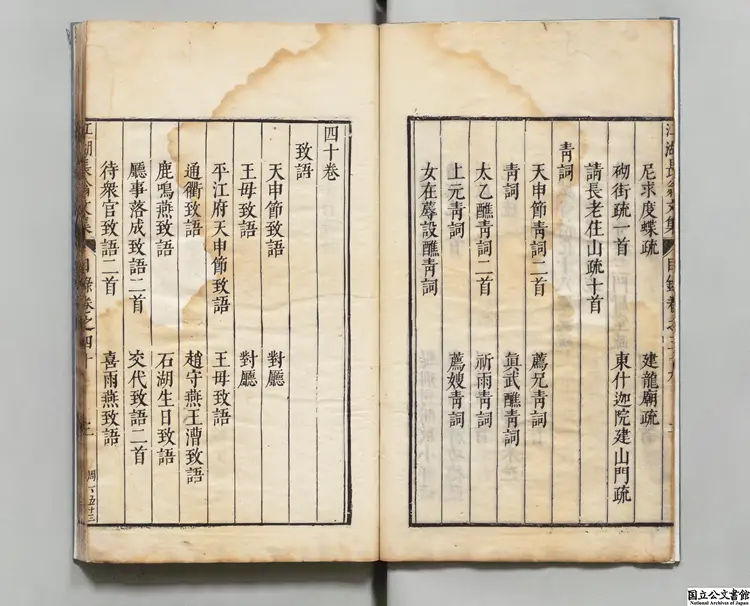 江湖長翁文集 目錄卷之三十九
尼求度蝶疏 建龍廟疏
砌街疏一首 東什迦院建山門疏
請長老住山疏十首
青詞
天申節青詞二首 薦兄青詞
青詞 真武醮青詞
太乙醮青詞二首 祈雨青詞
上元青詞 薦嫂青詞
女在蓐設醮青詞
四十卷
致語
天申節致語 對廳
王母致語 對廳
平江府天申節致語 王母致語
通衢致語 趙守燕王漕致語
鹿鳴燕致語 石湖生日致語
廳事落成致語二首 交代致語二首
待衆官致語二首 喜雨燕致語
江湖長翁文集 目錄卷之四十
国立公文書館
National Archives of Japan